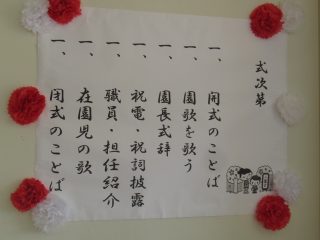 式次第
一、開式のことば
一、園歌を歌う
一、園長式辞
一、祝電・祝詞披露
一、職員・担任紹介
一、在園児の歌
一、閉式のことば